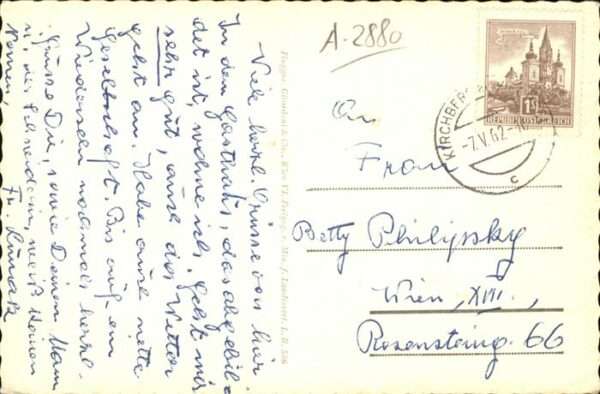 Viele herzl. Grüsse von hier
In dem Gasthaus, das abgebil-
det ist, wohne ich, geht mir
sehr gut, auch das Wetter
geht an. Habe eine nette
Gesellschaft. Bis auf ein
Wiedersehen nochmals herzl.
Grüsse Dir, sowie Deinem Mann
u. der Schneiderin, weiß keinen
Namen,
Fr.
A-2880
An
Frau
Betty Philipsky
Wien, XVII.,
Rosensteing. 66
1S
REPUBLIK ÖSTERREICH
KIRCHBERG
-7.V.62-
c